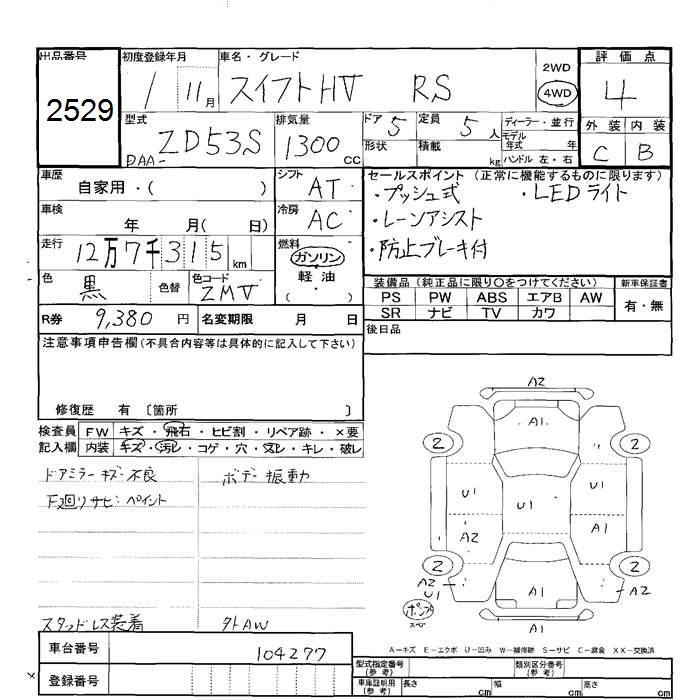 出品番号 初度登録年月 車名・グレード 2WD 評価点
2529 1 11月 スイフトHV RS 4WD 4
型式 排気量 ドア 5 定員 5人 ディーラー・並行 外装 内装
DAA- ZD53S 1300cc 形状 積載 kg モデル年式 年 C B
ハンドル 左・右
車歴 自家用・( ) シフト AT セールスポイント (正常に機能するものに限ります)
・プッシュ式 ・LEDライト
車検 年 月( 日) 冷房 AC ・レーンアシスト
走行 12万7千315km 燃料 ガソリン ・防止ブレーキ付
軽油
( )
色 黒 色替 色コード ZMV 装備品 (純正品に限り○をつけてください) 新車保証書
PS PW ABS エアB AW 有・無
R券 9,380円 名変期限 月 日 SR ナビ TV カワ
注意事項申告欄(不具合内容等は具体的に記入して下さい) 後日品
修復歴 有 〔箇所 〕
検査員 FW キズ・飛石・ヒビ割・リペア跡・×要
記入欄 内装 キズ・汚レ・コゲ・穴・欠レ・キレ・破レ
ドアミラーキズ・不良 ボデー振動
F廻りサビ・ペイント
スタッドレス装着 外AW
A2
A1
2 2
U1 U1
A2 A1
2 2
A2 A1 A2
U1
A1
A-キズ E-エクボ U-凹み W-補修跡 S-サビ C-腐食 XX-交換済
車台番号 104277 型式指定番号(参考) 類別区分番号(参考)
登録番号 車庫証明用(参考) 長さ cm 幅 cm 高さ cm